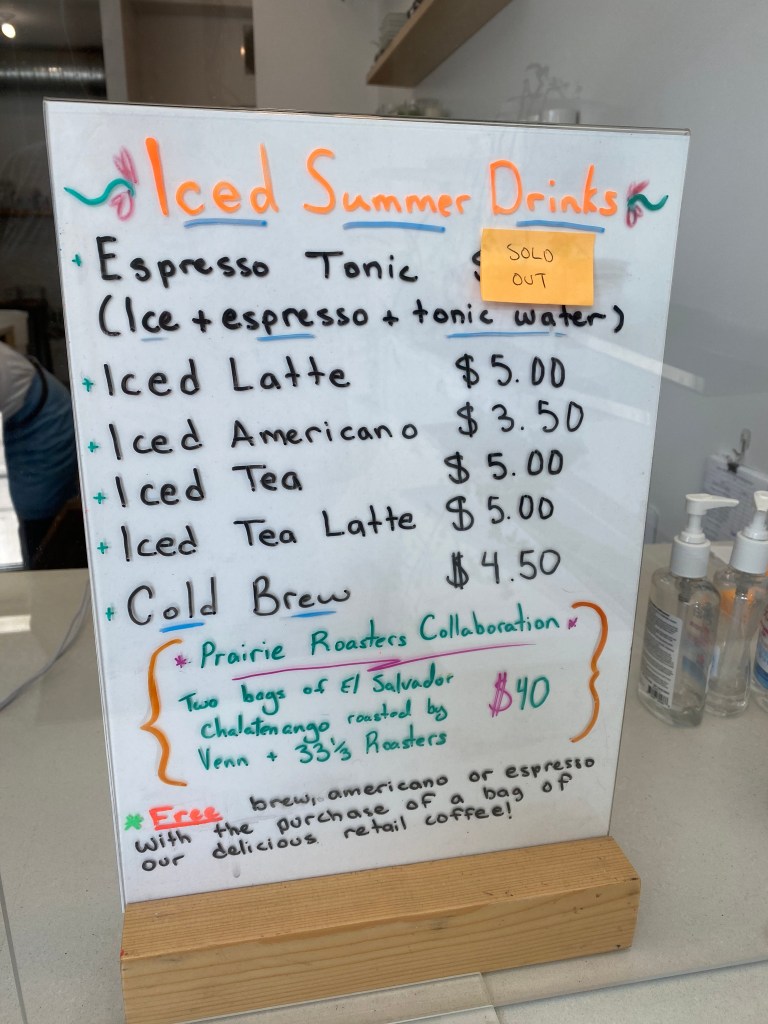 Iced Summer Drinks
+ Espresso Tonic $
SOLD
OUT
(Ice + espresso + tonic water)
+ Iced Latte $5.00
+ Iced Americano $3.50
+ Iced Tea $5.00
+ Iced Tea Latte $5.00
+ Cold Brew $4.50
* Prairie Roasters Collaboration *
Two bags of El Salvador $40
Chalatenango roasted by
Venn + 33⅓ Roasters
* Free brew, americano or espresso
with the purchase of a bag of
our delicious retail coffee!